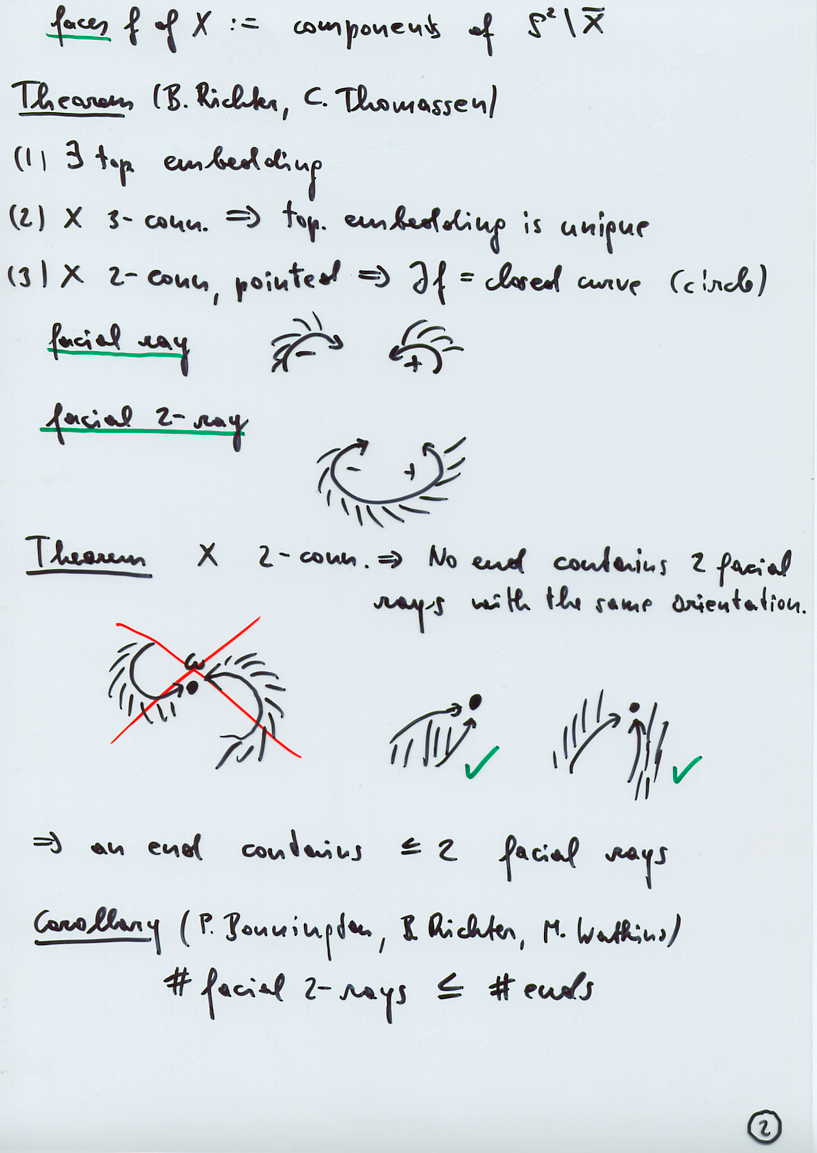 faces f of X := components of S²\X̄
Theorem (B. Richter, C. Thomassen)
(1) ∃ top embedding
(2) X 3-conn. ⇒ top. embedding is unique
(3) X 2-conn, pointed ⇒ ∂f = closed curve (circle)
facial ray
− +
facial 2-ray
− +
Theorem X 2-conn. ⇒ No end contains 2 facial
rays with the same orientation.
ω
✓ ✓
⇒ an end contains ≤ 2 facial rays
Corollary (P. Bonnington, B. Richter, M. Watkins)
# facial 2-rays ≤ # ends
2